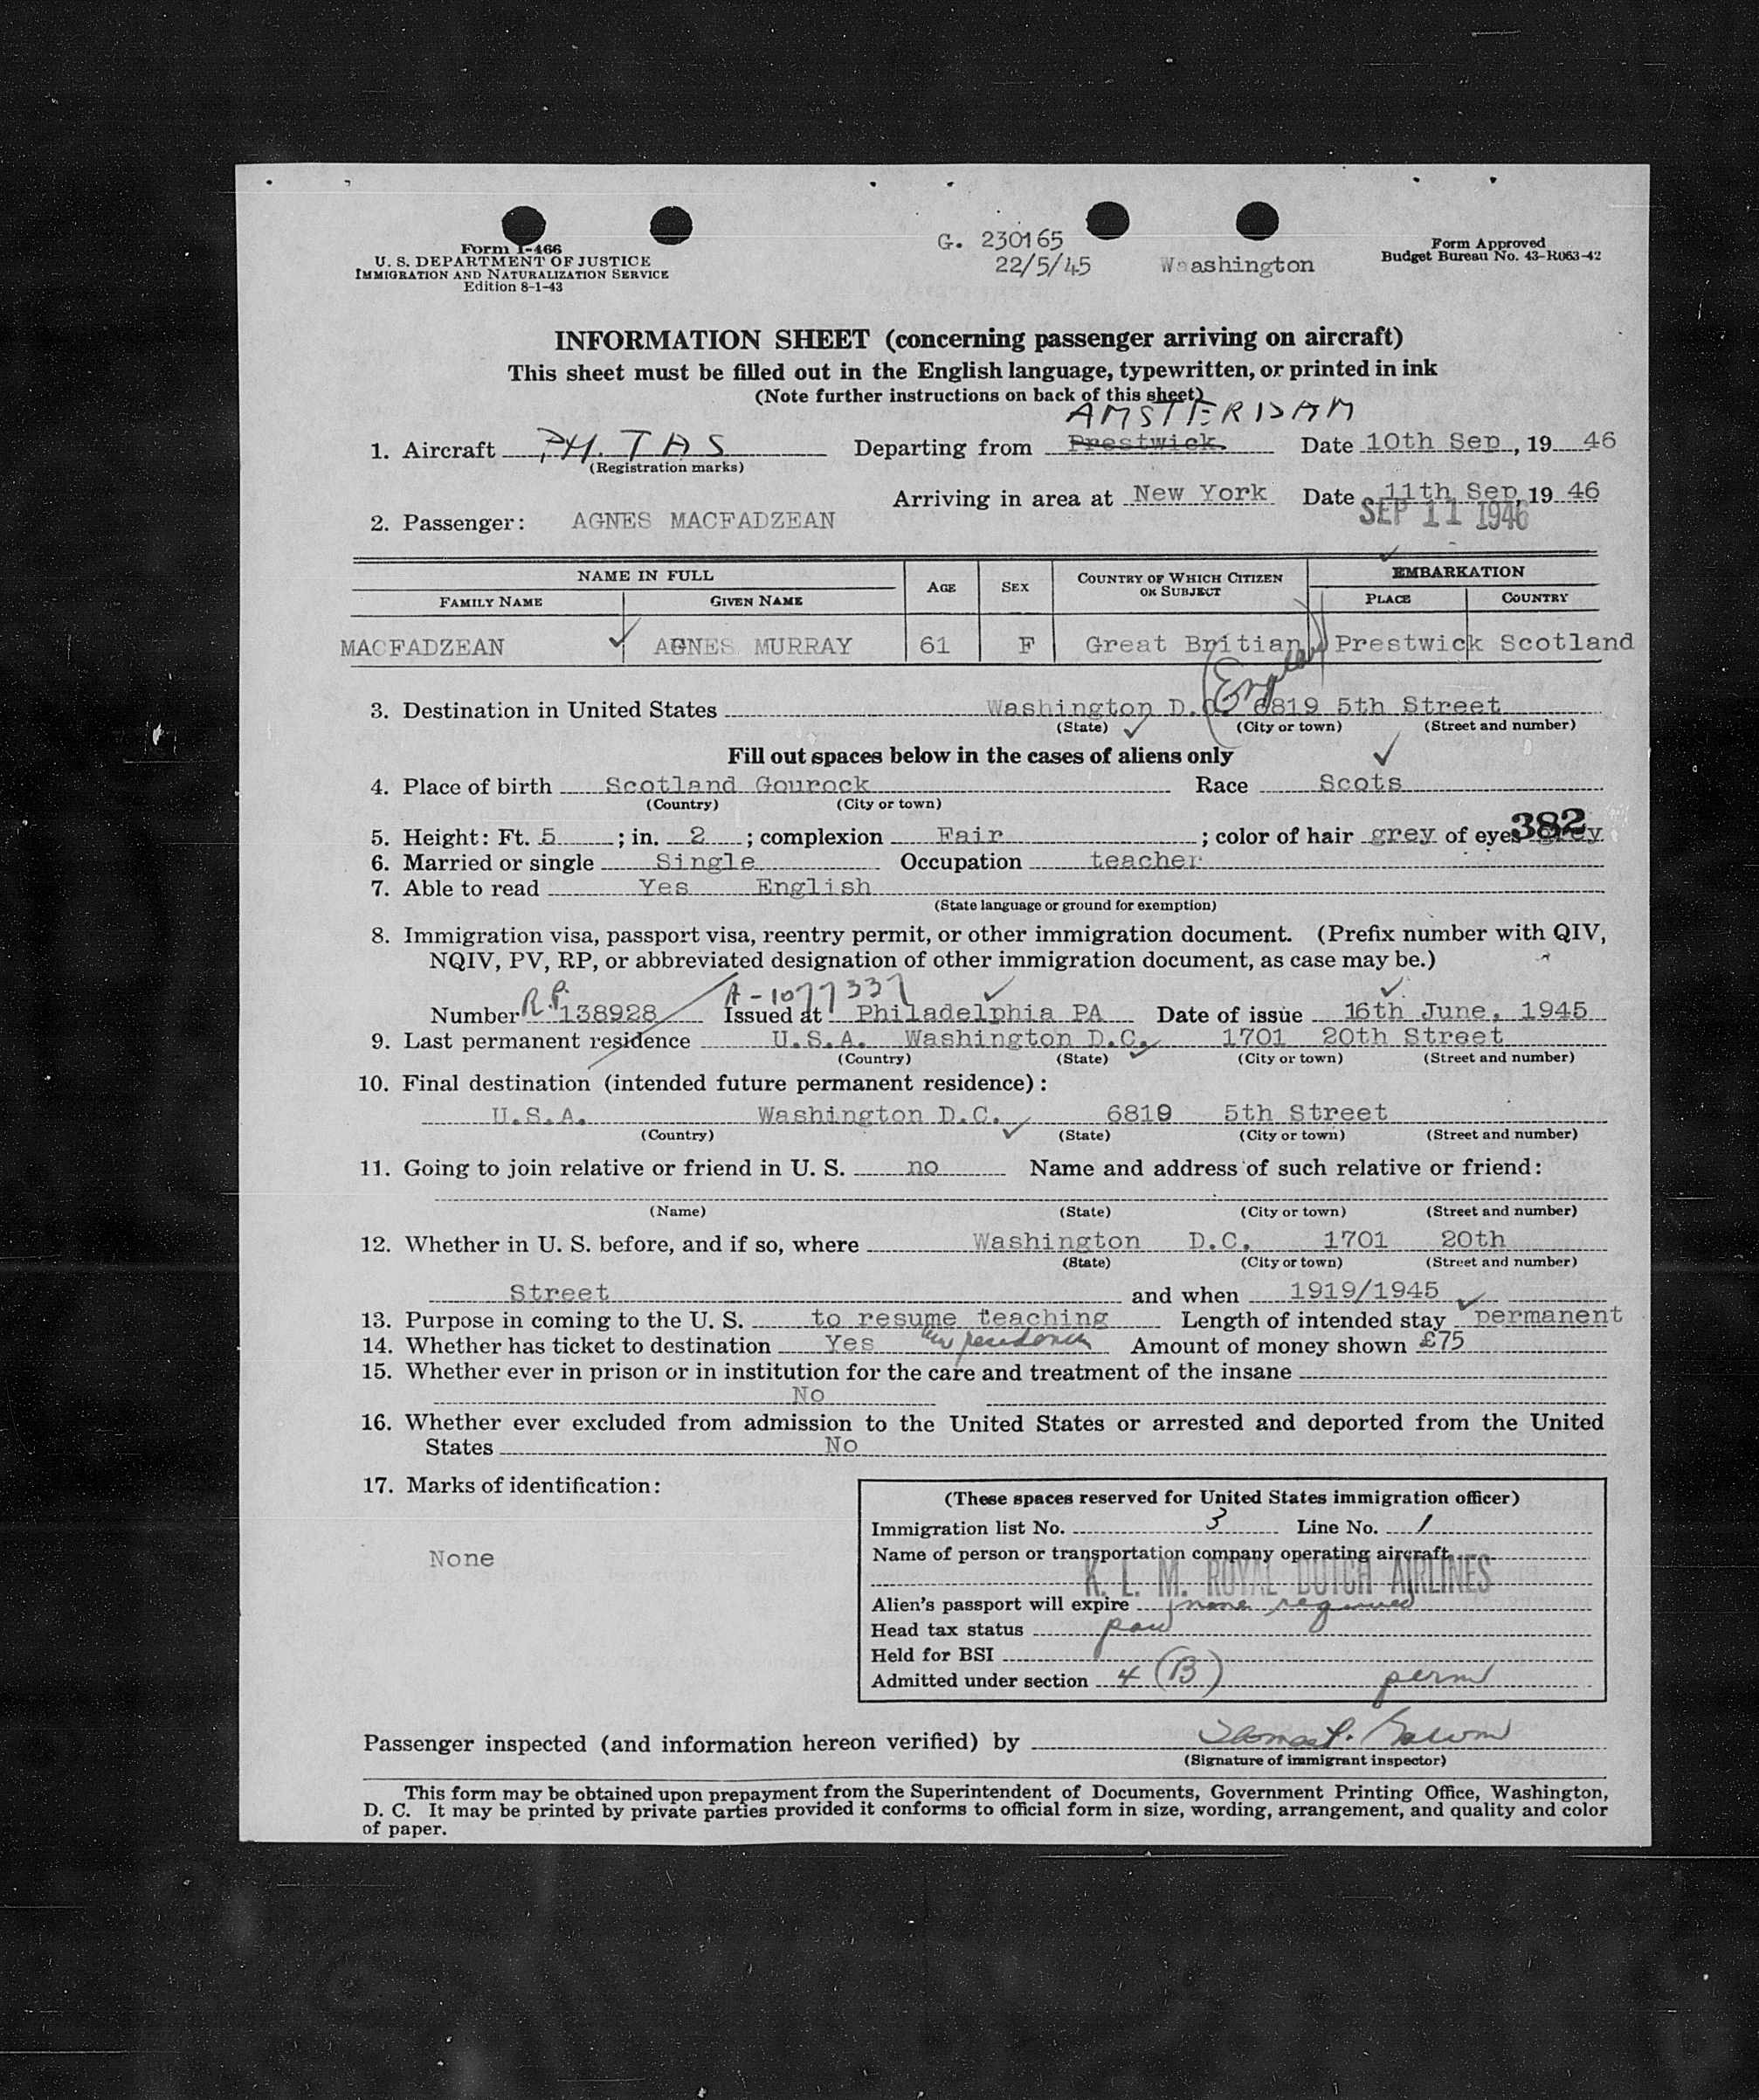 Form I-466
U. S. DEPARTMENT OF JUSTICE
IMMIGRATION AND NATURALIZATION SERVICE
Edition 8-1-43
G. 230165
22/5/45 Waashington
Form Approved
Budget Bureau No. 43-R063-42
INFORMATION SHEET (concerning passenger arriving on aircraft)
This sheet must be filled out in the English language, typewritten, or printed in ink
(Note further instructions on back of this sheet)
AMSTERDAM
1. Aircraft PH. TAS Departing from Prestwick. Date 10th Sep, 19 46
(Registration marks)
Arriving in area at New York Date 11th Sep, 19 46
SEP 11 1946
2. Passenger: AGNES MACFADZEAN
NAME IN FULL AGE SEX COUNTRY OF WHICH CITIZEN OR SUBJECT EMBARKATION
FAMILY NAME GIVEN NAME PLACE COUNTRY
MACFADZEAN AGNES MURRAY 61 F Great Britian Prestwick Scotland
(England)
3. Destination in United States Washington D.C. 6819 5th Street
(State) (City or town) (Street and number)
Fill out spaces below in the cases of aliens only
4. Place of birth Scotland Gourock Race Scots
(Country) (City or town)
382
5. Height: Ft. 5 ; in. 2 ; complexion Fair ; color of hair grey of eyes grey
6. Married or single Single Occupation teacher
7. Able to read Yes English
(State language or ground for exemption)
8. Immigration visa, passport visa, reentry permit, or other immigration document. (Prefix number with QIV,
NQIV, PV, RP, or abbreviated designation of other immigration document, as case may be.)
A-1077337
Number R.P. 138928 Issued at Philadelphia PA Date of issue 16th June, 1945
9. Last permanent residence U.S.A. Washington D.C. 1701 20th Street
(Country) (State) (City or town) (Street and number)
10. Final destination (intended future permanent residence):
U.S.A. Washington D.C. 6819 5th Street
(Country) (State) (City or town) (Street and number)
11. Going to join relative or friend in U. S. no Name and address of such relative or friend:
(Name) (State) (City or town) (Street and number)
12. Whether in U. S. before, and if so, where Washington D.C. 1701 20th
(State) (City or town) (Street and number)
Street and when 1919/1945
13. Purpose in coming to the U. S. to resume teaching Length of intended stay permanent
14. Whether has ticket to destination Yes Amount of money shown £75
15. Whether ever in prison or in institution for the care and treatment of the insane
No
16. Whether ever excluded from admission to the United States or arrested and deported from the United
States No
17. Marks of identification:
None
(These spaces reserved for United States immigration officer)
Immigration list No. 3 Line No. 1
Name of person or transportation company operating aircraft
K. L. M. ROYAL DUTCH AIRLINES
Alien's passport will expire none required
Head tax status
Held for BSI
Admitted under section 4 (B) perm
Passenger inspected (and information hereon verified) by
(Signature of immigrant inspector)
This form may be obtained upon prepayment from the Superintendent of Documents, Government Printing Office, Washington,
D. C. It may be printed by private parties provided it conforms to official form in size, wording, arrangement, and quality and color
of paper.